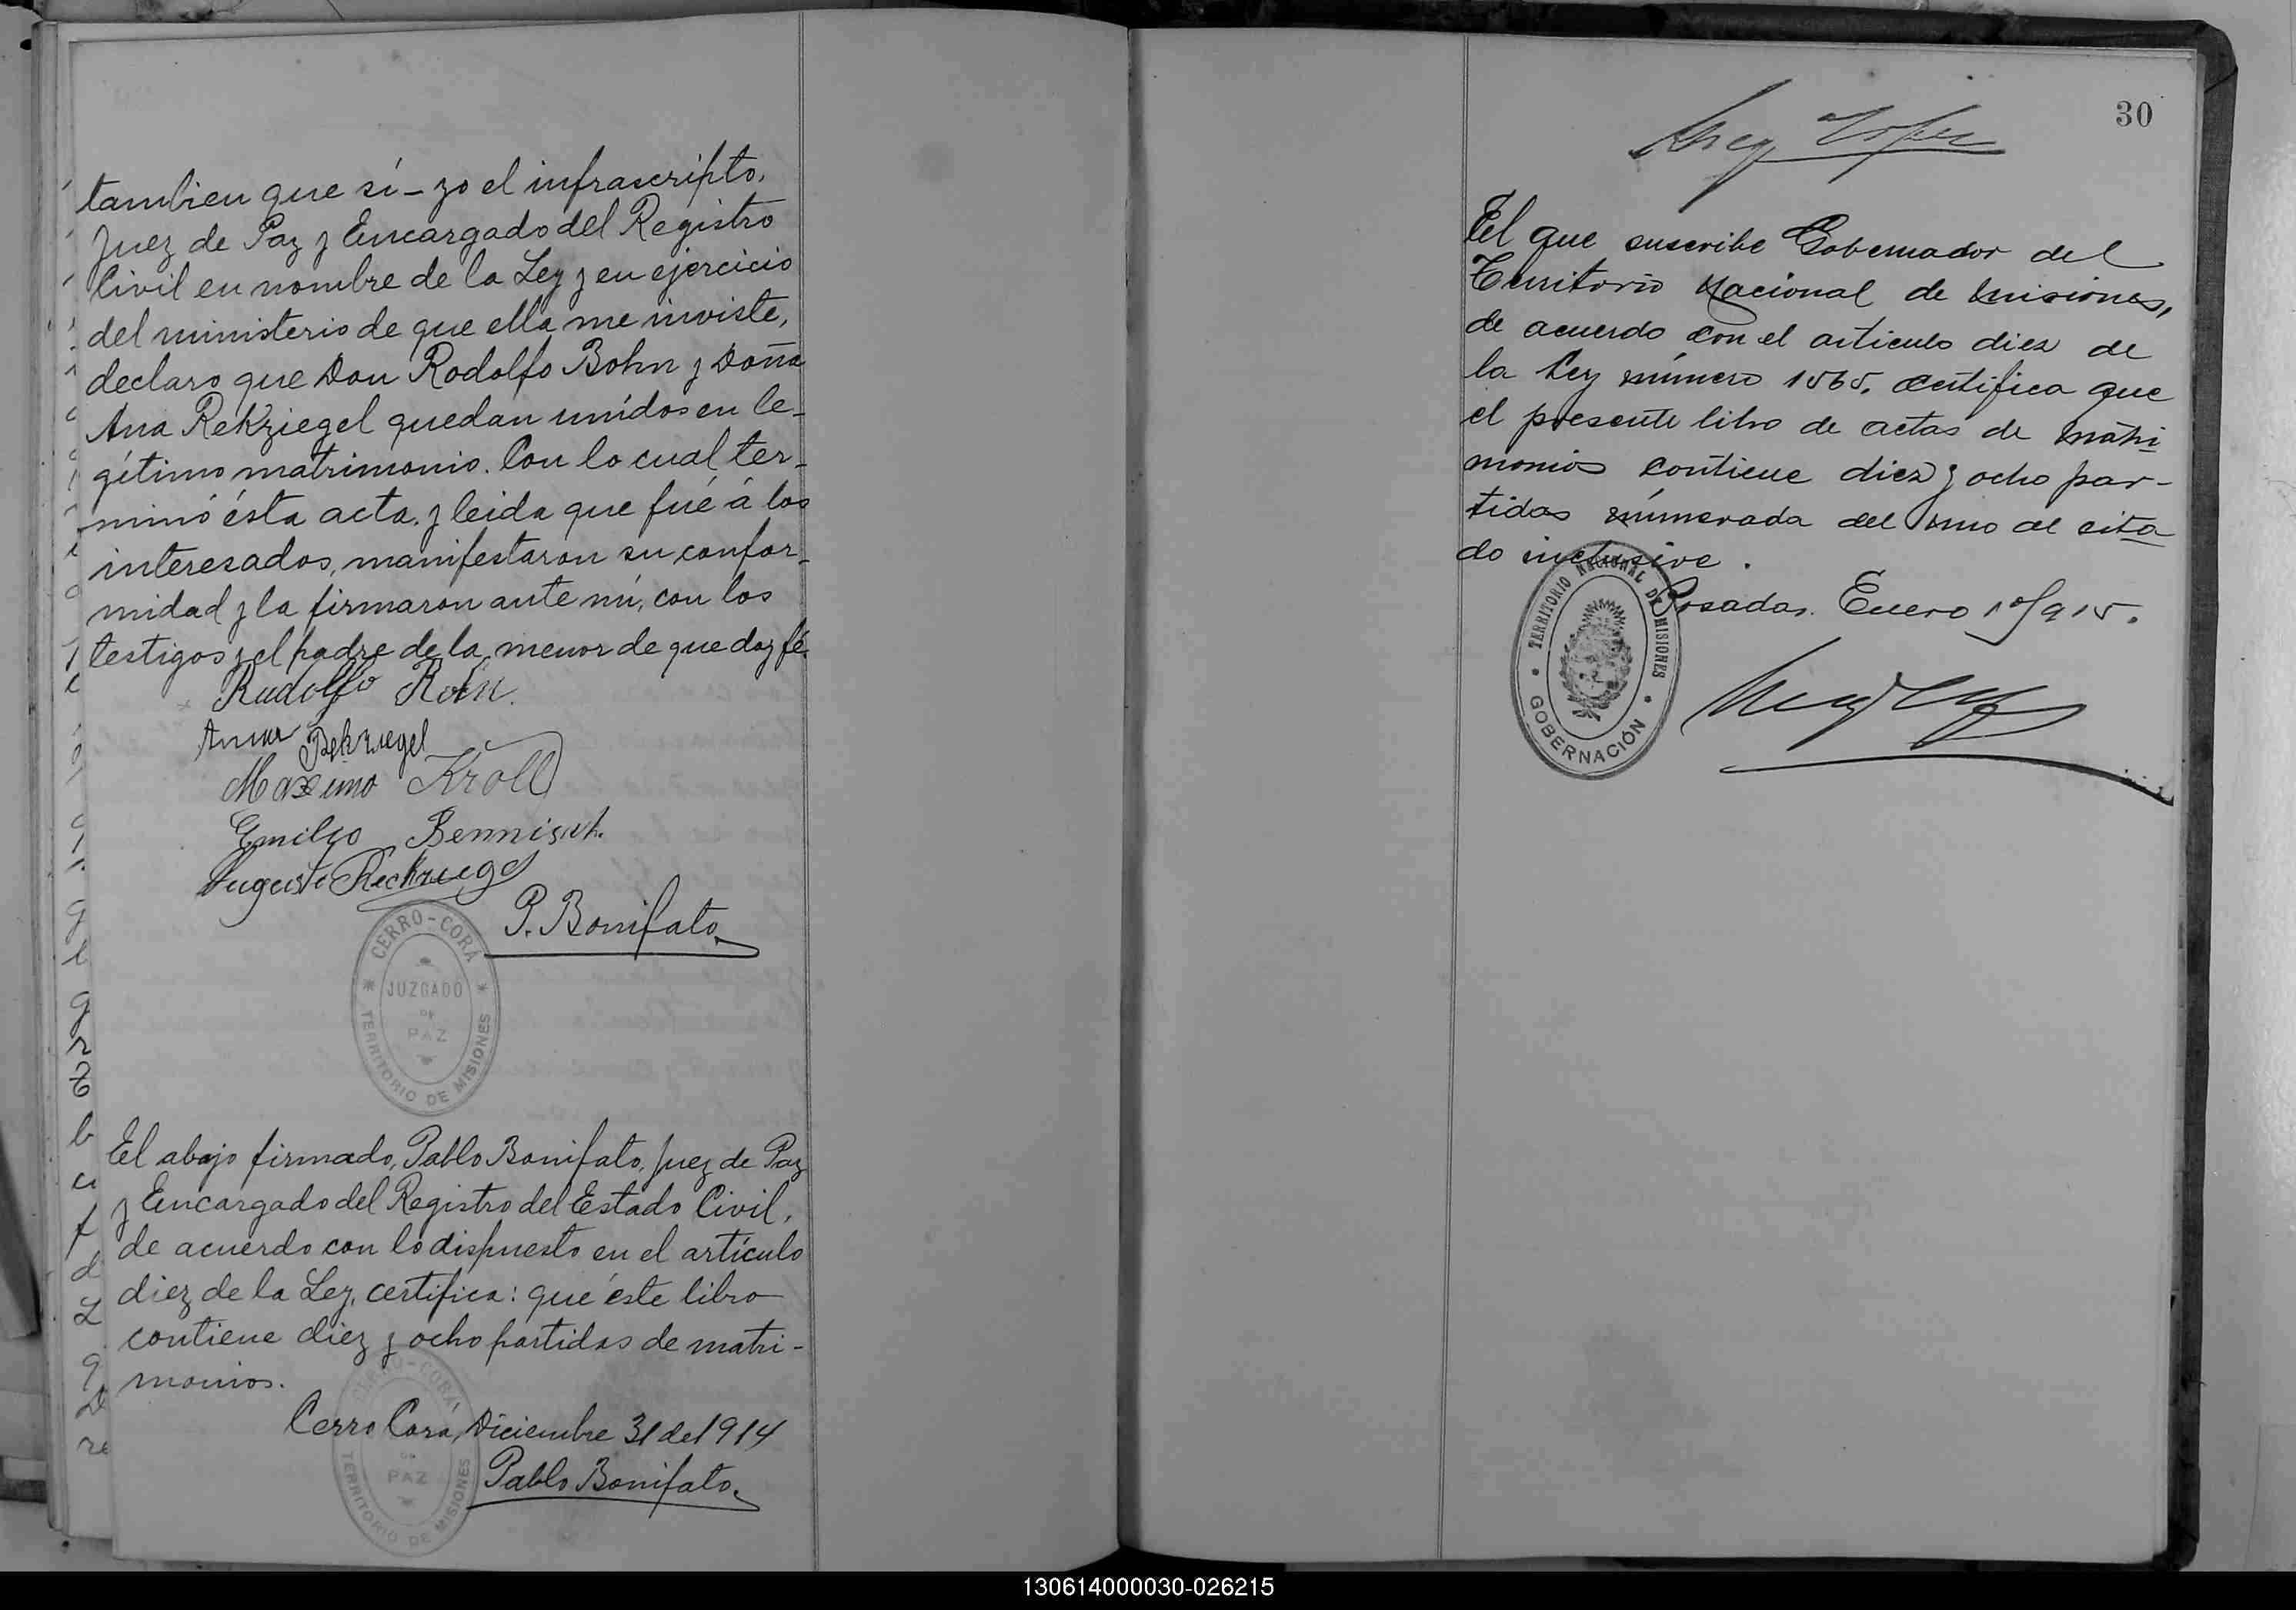 tambien que sí – yo el infrascripto,
Juez de Paz y Encargado del Registro
Civil en nombre de la Ley y en ejercicio
del ministerio de que ella me inviste,
declaro que Don Rodolfo Bohn y Doña
Ana Rekziegel quedan unidos en le-
gítimo matrimonio. Con lo cual ter-
minó ésta acta, y leida que fué á los
interesados, manifestaron su confor-
midad y la firmaron ante mí, con los
testigos y el padre de la menor de que doy fé.
Rudolfo
Rekziegel
Maximo Kroll
Emilio Bennisch.
P. Bonifato
CERRO-CORÁ
JUZGADO
DE
PAZ
TERRITORIO DE MISIONES
El abajo firmado, Pablo Bonifato, Juez de Paz
y Encargado del Registro del Estado Civil,
de acuerdo con lo dispuesto en el artículo
diez de la Ley, certifica: que éste libro
contiene diez y ocho partidas de matri-
monios.
Cerro Corá, Diciembre 31 de 1914
Pablo Bonifato
CERRO-CORÁ
DE
PAZ
TERRITORIO DE MISIONES
30
El que suscribe Gobernador del
Territorio Nacional de Misiones,
de acuerdo con el articulo diez de
la Ley número 1565, certifica que
el presente libro de actas de matri
monios contiene diez y ocho par-
tidas númerada del uno al cita
do inclusive.
Posadas. Enero 1º/915.
TERRITORIO NACIONAL DE MISIONES
GOBERNACIÓN
130614000030-026215